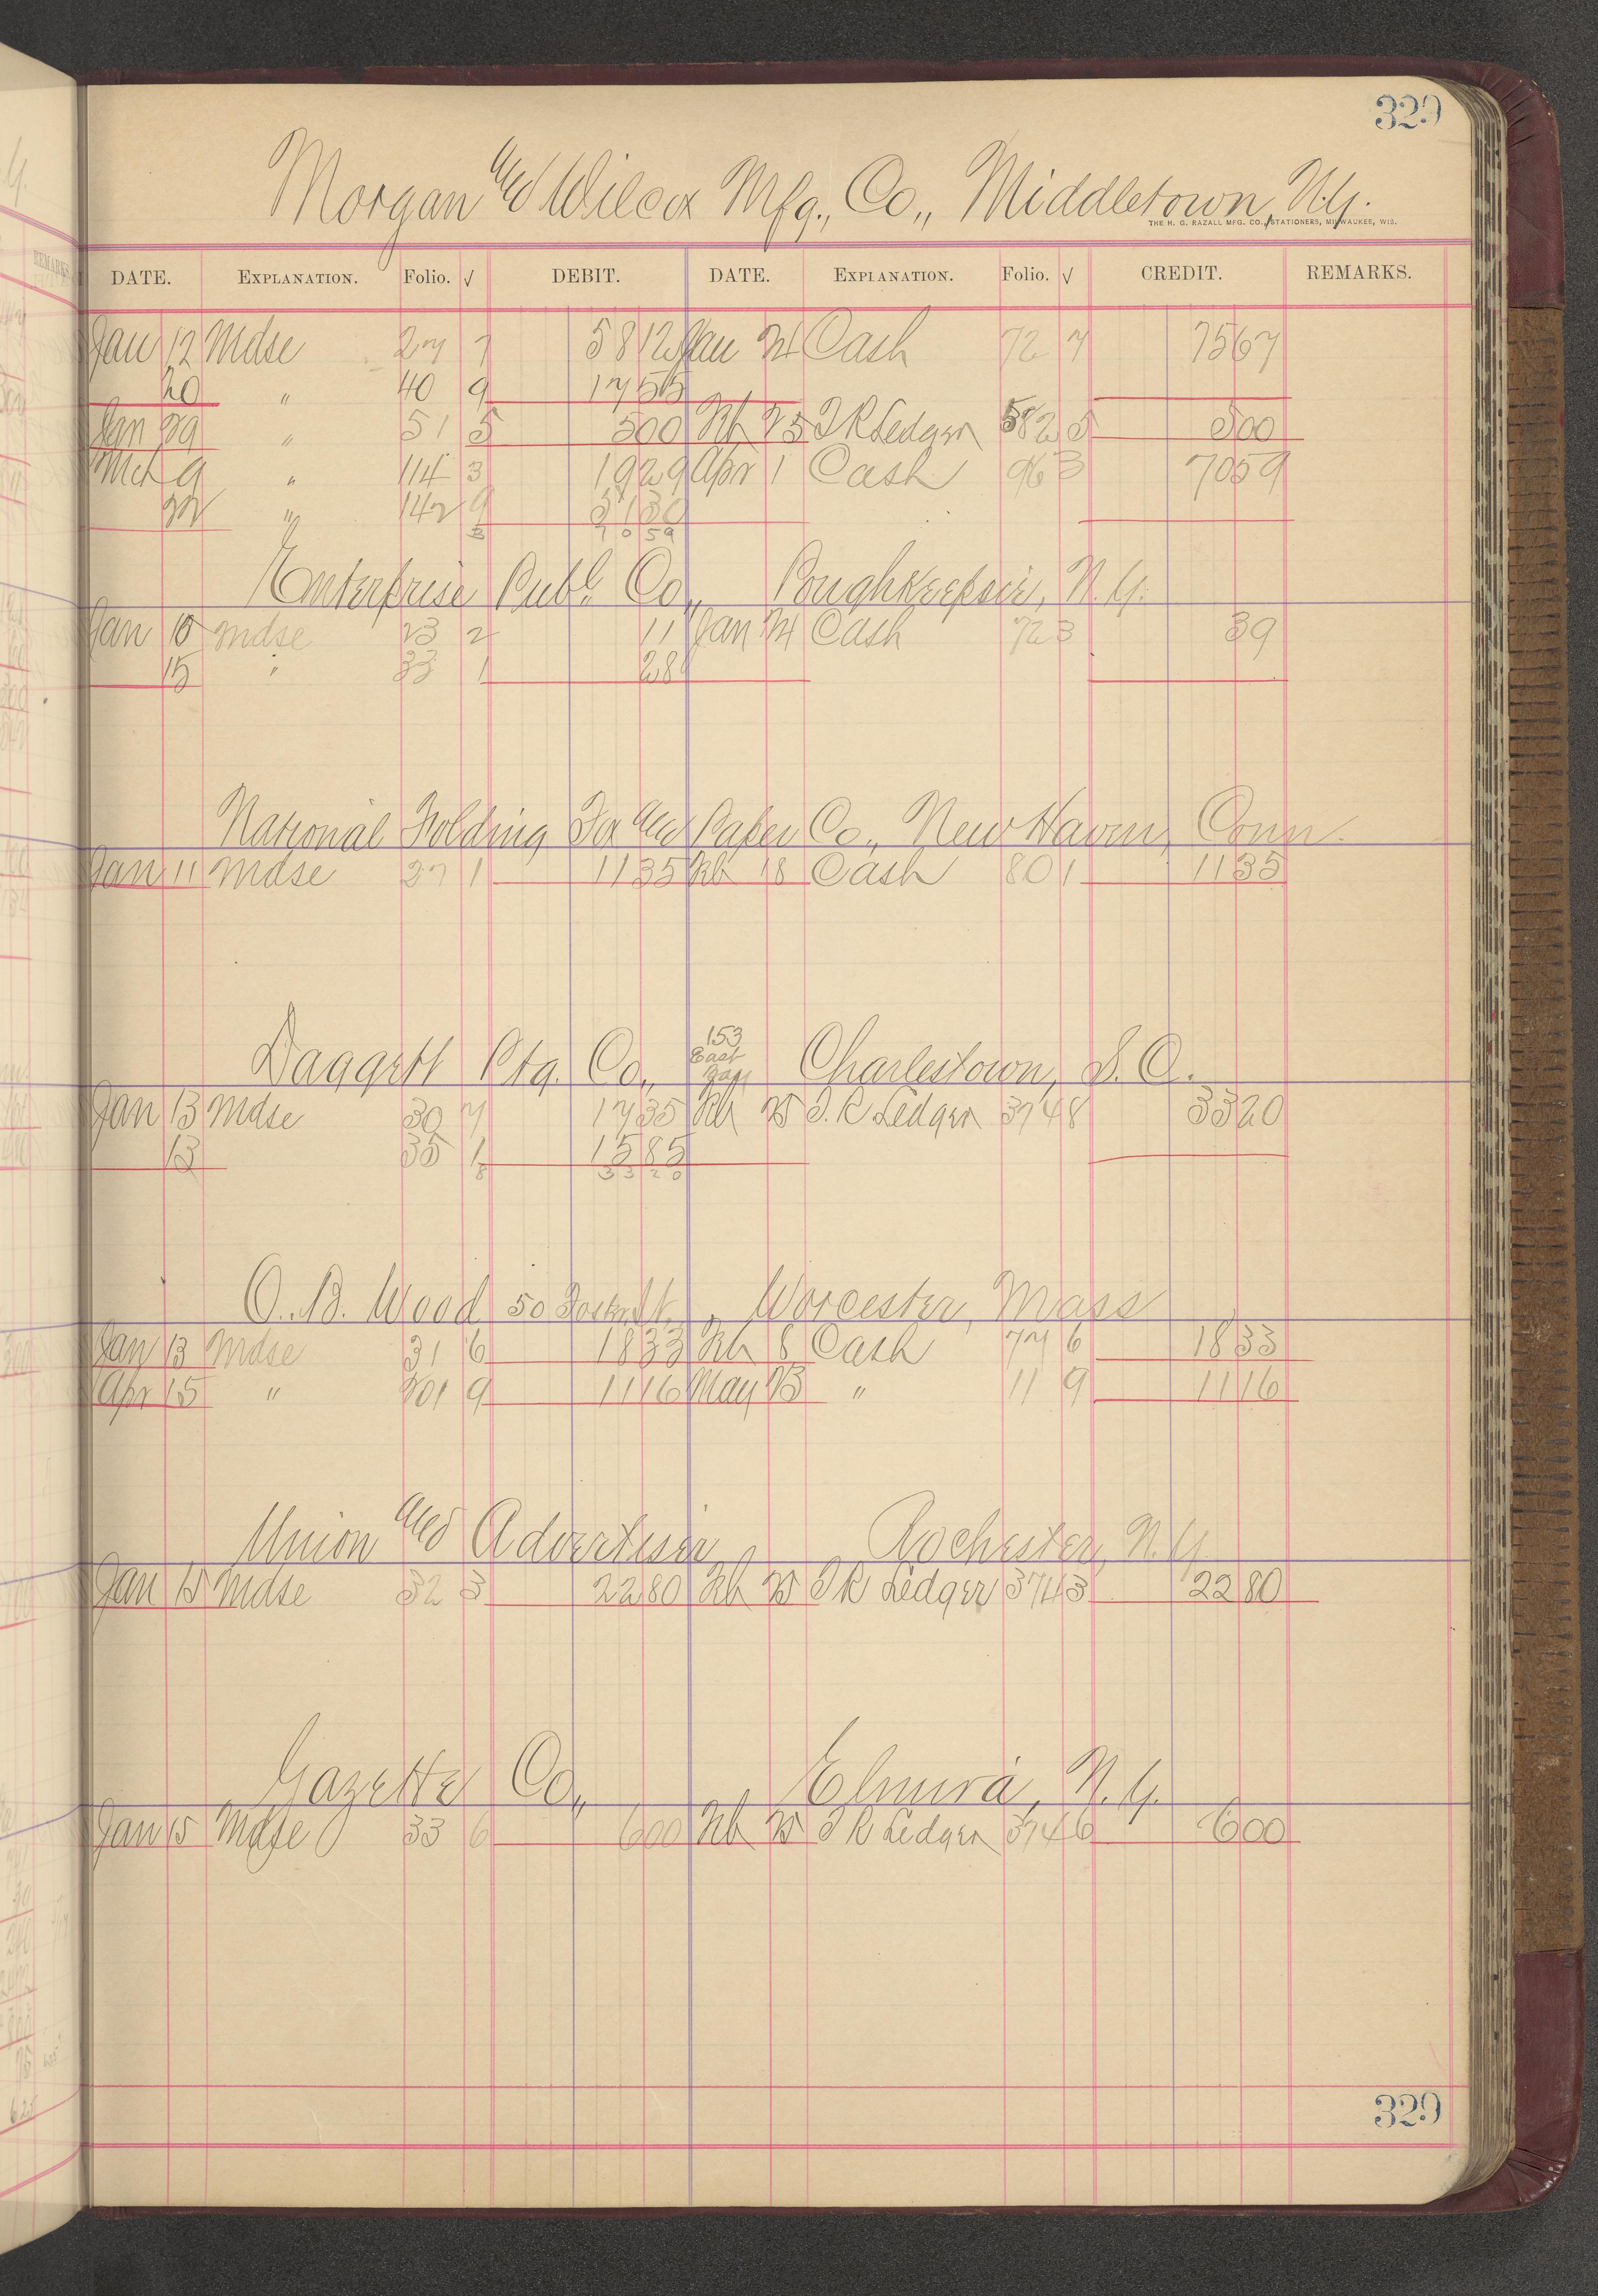 329
Morgan and Wilcox Mfg., Co., Middletown, N.Y.
THE H. G. RAZALL MFG. CO., STATIONERS, MILWAUKEE, WIS.
DATE. EXPLANATION. Folio. √ DEBIT. DATE. EXPLANATION. Folio. √ CREDIT. REMARKS.
Jan 12 Mdse 27 7 5812 Jan 24 Cash 72 7 7567
20 " 40 9 1755
Jan 29 " 51 5 500 Feb 25 T R Ledger 382 5 500
Mch 9 " 114 3 1929 Apr 1 Cash 96 3 7059
22 " 142 9 5130
3 7059
Enterprise Publ. Co., Poughkeepsie, N.Y.
Jan 10 Mdse 23 2 11 Jan 24 Cash 72 3 39
15 " 33 1 28
National Folding Box and Paper Co., New Haven, Conn.
Jan 11 Mdse 27 1 1135 Feb 18 Cash 80 1 1135
Daggett Ptg. Co., 153 East Bay Charlestown, S.C.
Jan 13 Mdse 30 7 1735 Feb 25 T.R Ledger 374 8 3320
13 35 1 1585
8 3320
O. B. Wood 50 Foster St., Worcester, Mass
Jan 13 Mdse 31 6 1833 Feb 8 Cash 77 6 1833
Apr 15 " 201 9 1116 May 23 " 11 9 1116
Union and Advertiser Rochester, N.Y.
Jan 15 Mdse 32 3 2280 Feb 25 T R Ledger 374 3 2280
Gazette Co., Elmira, N.Y.
Jan 15 Mdse 33 6 600 Feb 25 T R Ledger 374 6 600
329